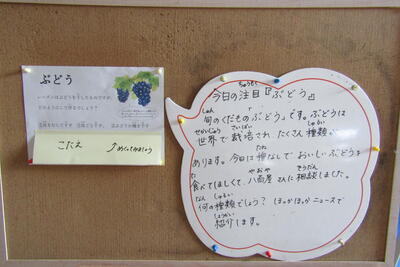 ぶどう
こたえ
↗めくってみましょう
今日の注目『ぶどう』
旬のくだもの ぶどう」です。ぶどうは
世界で栽培され、たくさん種類が
あります。今日は種なしで おいしいぶどうを
食べてほしくて、八百屋さんに相談しました。
何の種類でしょう? ぽっかぽっかニュースで
紹介します。